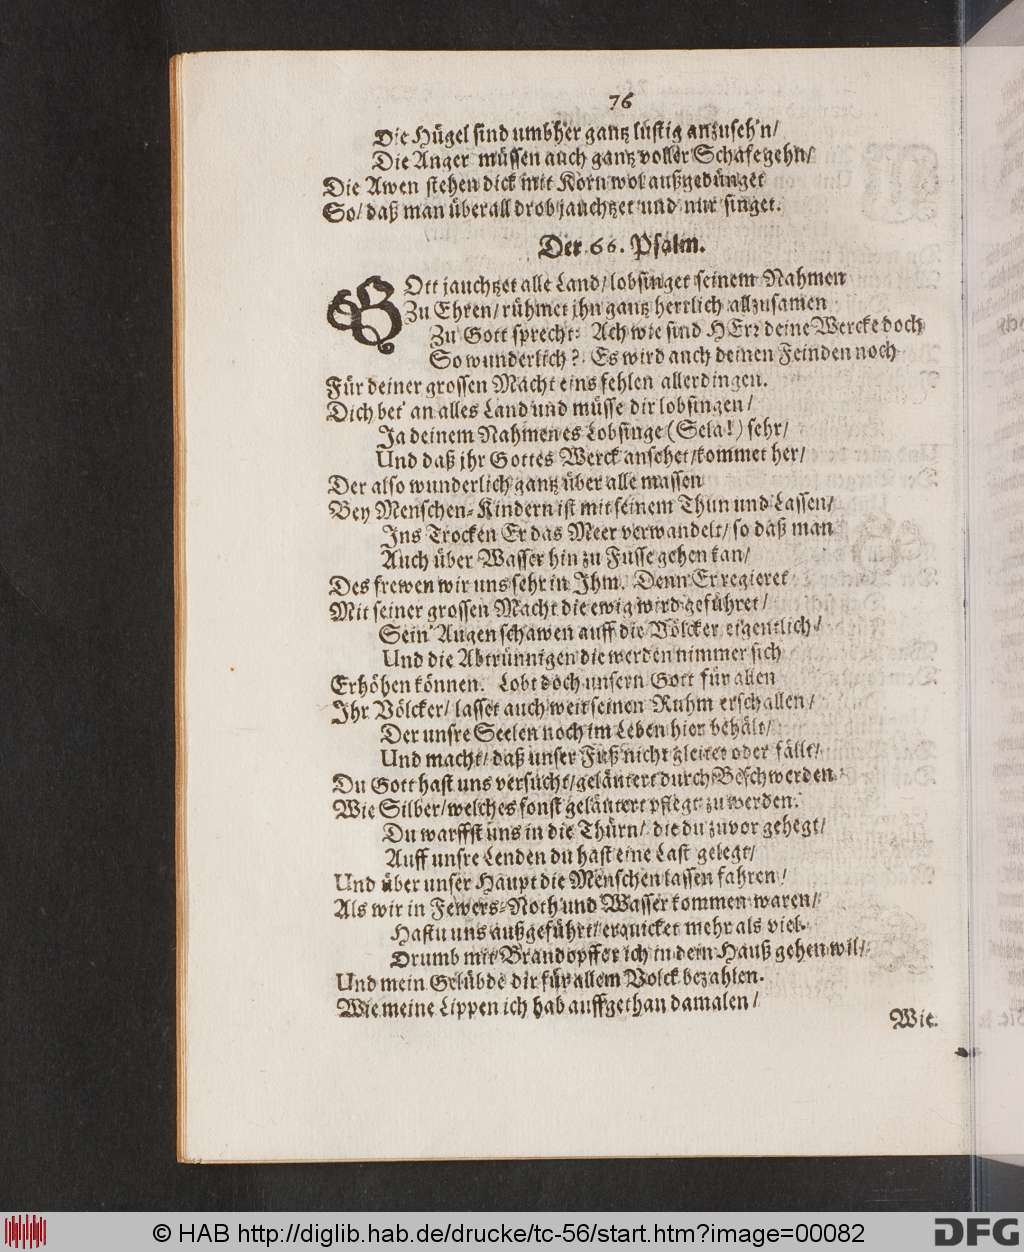 76
Die Hügel sind umbher gantz lustig anzuseh'n/
Die Anger müssen auch gantz voller Schafe gehn/
Die Awen stehen dick mit Korn wol außgedünget
So/ daß man überall drob jauchtzet und nur singet.
Der 66. Psalm.
GOtt jauchtzet alle Land/ lobsinget seinem Nahmen
Zu Ehren/ rühmet jhn gantz herrlich allzusamen
Zu Gott sprecht: Ach wie sind HErr deine Wercke doch
So wunderlich? Es wird auch deinen Feinden noch
Für deiner grossen Macht eins fehlen allerdingen.
Dich bet' an alles Land und müsse dir lobsingen/
Ja deinem Nahmen es Lobsinge (Sela!) sehr/
Und daß jhr Gottes Werck ansehet/ kommet her/
Der also wunderlich gantz über alle massen
Bey Menschen-Kindern ist mit seinem Thun und Lassen/
Ins Trocken Er das Meer verwandelt/ so daß man
Auch über Wasser hin zu Fusse gehen kan/
Des frewen wir uns sehr in Jhm. Denn Er regieret
Mit seiner grossen Macht die ewig wird geführet/
Sein' Augen schawen auff die Völcker eigentlich/
Und die Abtrünnigen die werden nimmer sich
Erhöhen können. Lobt doch unsern Gott für allen
Jhr Völcker/ lasset auch weit seinen Ruhm erschallen/
Der unsre Seelen noch im Leben hier behält/
Und macht/ daß unser Fuß nicht gleitet oder fällt/
Du Gott hast uns versucht/ geläutert durch Beschwerden
Wie Silber/ welches sonst geläutert pflegt zu werden.
Du warffst uns in die Thürn/ die du zuvor gehegt/
Auff unsre Lenden du hast eine Last gelegt/
Und über unser Haupt die Menschen lassen fahren/
Als wir in Fewers-Noth und Wasser kommen waren/
Hastu uns außgeführt/ erquicket mehr als viel.
Drumb mit Brandopffer ich in dein Hauß gehen wil/
Und mein Gelübde dir für allem Volck bezahlen.
Wie meine Lippen ich hab auffgethan damalen/
Wie
© HAB http://diglib.hab.de/drucke/tc-56/start.htm?image=00082
DFG